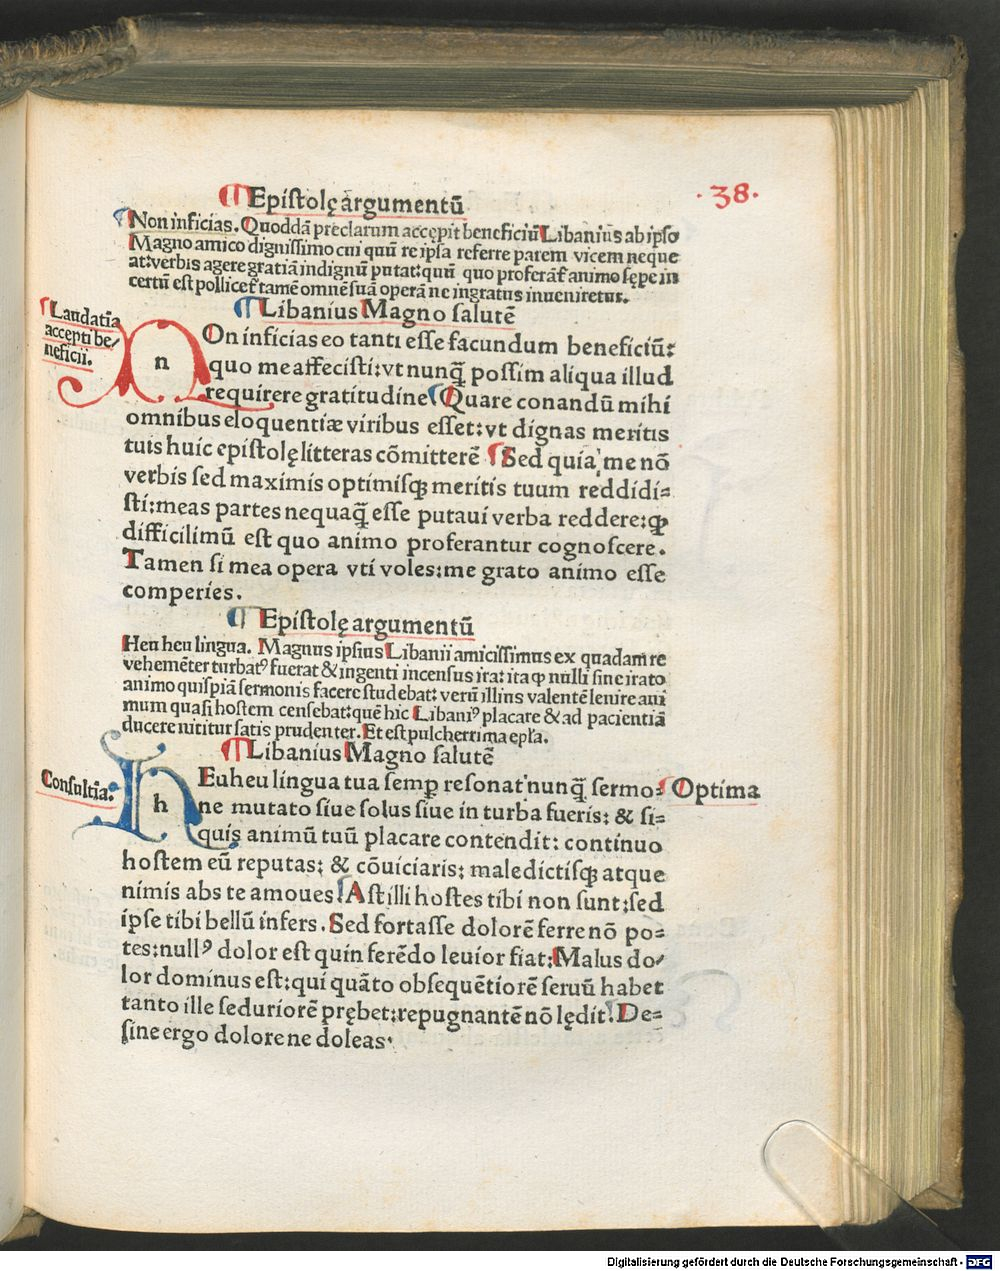 ·38·
¶Epistolę argumentū
¶Non inficias. Quoddā preclarum accępit beneficiū Libanius ab ipso
Magno amico dignissimo cui quū re ipsa referre parem vicem neque
at:verbis agere gratiā indignū putat:quū quo proferāt animo sępe in
certū est pollicet tamē omnē suā operā ne ingratus inueniretur.
¶Libanius Magno salutē
Laudatia
accepti be/
neficii.
nOn inficias eo tanti esse facundum beneficiū:
quo me affecisti:vt nunꝗ̄ possim aliqua illud
requirere gratitudine¶Quare conandū mihi
omnibus eloquentiæ viribus esset:vt dignas meritis
tuis huic epistolę litteras cōmitterē ¶Sed quia me nō
verbis sed maximis optimisꝗ meritis tuum reddidi=
sti:meas partes nequaꝗ̄ esse putaui verba reddere:ꝙ
difficilimū est quo animo proferantur cognoscere.
Tamen si mea opera vti voles:me grato animo esse
comperies.
¶Epistolę argumentū
Heu heu lingua. Magnus ipsius Libanii amicissimus ex quadam re
vehemēter turbatꝰ fuerat & ingenti incensus ira: ita ꝙ nulli sine irato
animo quispiā sermonis facere studebat: verū illius valentē leuire ani
mum quasi hostem censebat:quē hic Libaniꝰ placare & ad pacientiā
ducere nititur satis prudenter. Et est pulcherrima epła.
¶Libanius Magno salutē
Consultia.
hEu heu lingua tua semꝑ resonat nunꝗ̄ sermo= Optima
ne mutato siue solus siue in turba fueris: & si=
quis animū tuū placare contendit: continuo
hostem eū reputas: & cōuiciaris: maledictisꝗ atque
nimis abs te amoues!Ast illi hostes tibi non sunt:sed
ipse tibi bellū infers. Sed fortasse dolorē ferre nō po=
tes:nullꝰ dolor est quin ferēdo leuior fiat:Malus do/
lor dominus est:qui quāto obsequētiorē seruū habet
tanto ille se duriorē prębet:repugnantē nō lędit!De=
sine ergo dolore ne doleas.
Digitalisierung gefördert durch die Deutsche Forschungsgemeinschaft - DFG